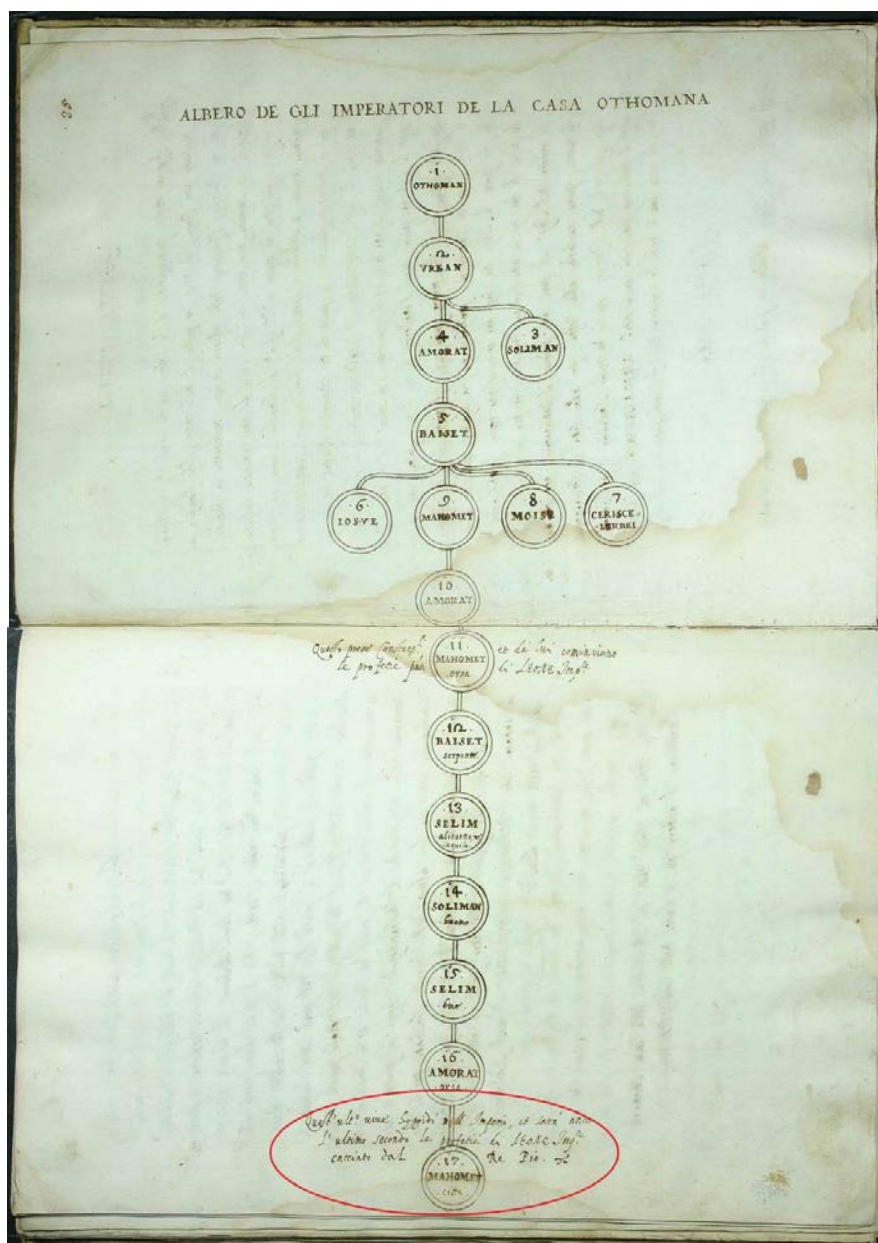 ALBERO DE GLI IMPERATORI DE LA CASA OTHOMANA
.1.
OTHOMAN
.2.
VRBAN
4
AMORAT
3
SOLIMAN
5
BAISET
.6.
IOSVE
9
MAHOMET
8
MOISE
7
CERISCE
LERBEI
10
AMORAT
Questo prese et da lui cominciano
le profetie di LEONE Imp.re
.11.
MAHOMET
orsa
.12.
BAISET
serpente
.13.
SELIM
aquila
.14.
SOLIMAN
.15.
SELIM
bue
.16.
AMORAT
orsa
vive Imperio, et sarà
l'ultimo secondo le profetie di LEONE Imp.re
cacciato dal Re Pio.
.17.
MAHOMET